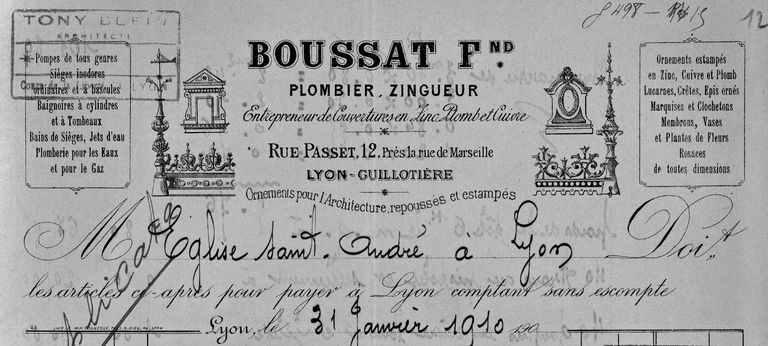 TONY BLEIN
ARCHITECTE
LYON
Pompes de tous genres
Sièges inodores
ordinaires et à bascules
Baignoires à cylindres
et à Tombeaux
Bains de Sièges, Jets d'eau
Plomberie pour les Eaux
et pour le Gaz
12
BOUSSAT FND.
PLOMBIER, ZINGUEUR
Entrepreneur de Couvertures en Zinc, Plomb et Cuivre
RUE PASSET, 12, Près la rue de Marseille
LYON-GUILLOTIÈRE
Ornements pour l'Architecture, repoussés et estampés
Ornements estampés
en Zinc, Cuivre et Plomb
Lucarnes, Crêtes, Epis ornés
Marquises et Clochetons
Membrons, Vases
et Plantes de Fleurs
Rosaces
de toutes dimensions
M Eglise Saint-André à Lyon Doit
les articles ci-après pour payer à Lyon comptant sans escompte
Duplicata
Lyon, le 31 Janvier 1910 190